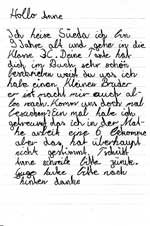 Hallo Anne
Ich heise Süeda ich bin
9 Jahre alt und gehe in die
Klasse 3c. Deine Texte hat
dich im Buch sehr schön
beschrieben weist du was ich
habe einen kleinen Bruder
er ist macht mir auch al-
les nach. Komm uns doch mal
besuchen? Ein mal habe ich
getreumt das ich in der Mat-
he arbeit eine 6 bekomme
aber das hat überhaupt
nicht gestimmt. Tschüß
Anne schreib bitte zurück.
bitte nach
hinten danke